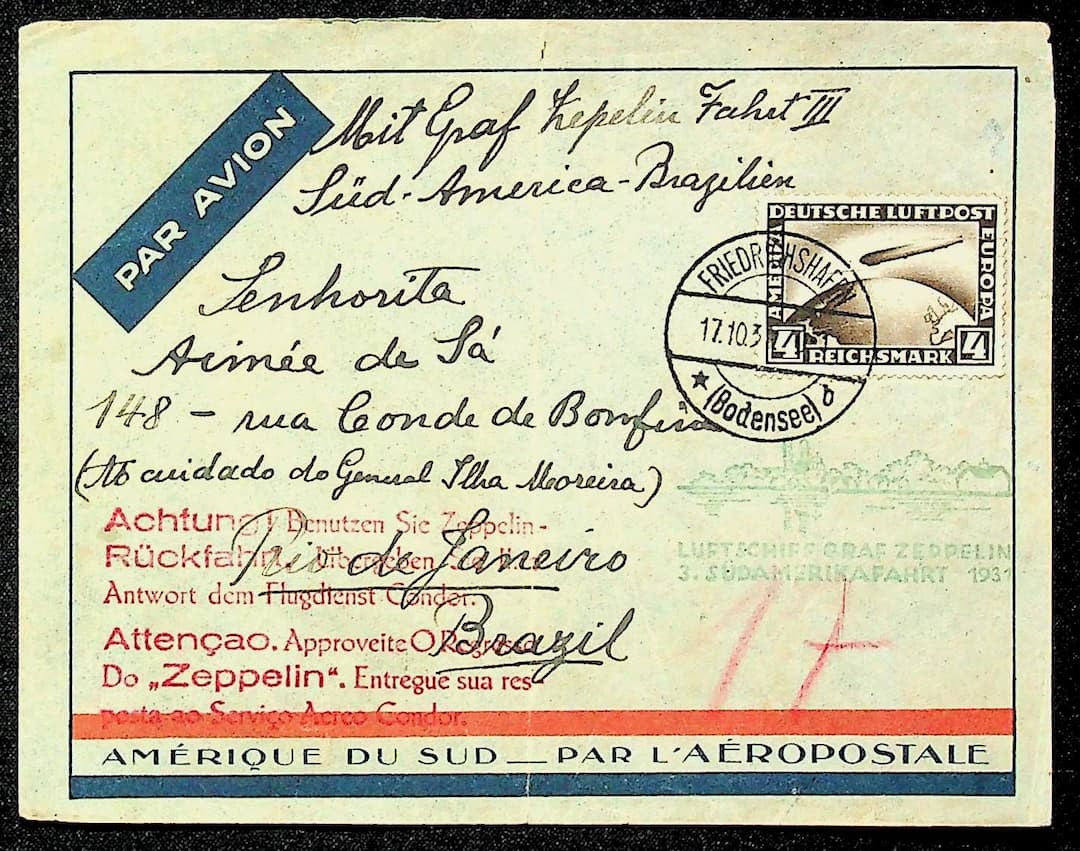 PAR AVION
Mit Graf Zepelin Fahrt III
Süd-America-Brazilien
DEUTSCHE LUFTPOST
AMERIKA
EUROPA
4 REICHSMARK 4
FRIEDRICHSHAFEN
17.10.3
(Bodensee)
Senhorita
Aimée de Sá
148 - rua Conde de Bomfim
(Ao cuidado do General Ilha Moreira)
Rio de Janeiro
Brazil
Achtung! Benutzen Sie Zeppelin-
Rückfahrt. Übergeben Sie
Antwort dem Flugdienst Condor.
Attençao. Approveite O Regresso
Do „Zeppelin“. Entregue sua res-
posta ao Serviço Aereo Condor.
LUFTSCHIFF GRAF ZEPPELIN
3. SÜDAMERIKAFAHRT 1931
17
AMÉRIQUE DU SUD — PAR L'AÉROPOSTALE